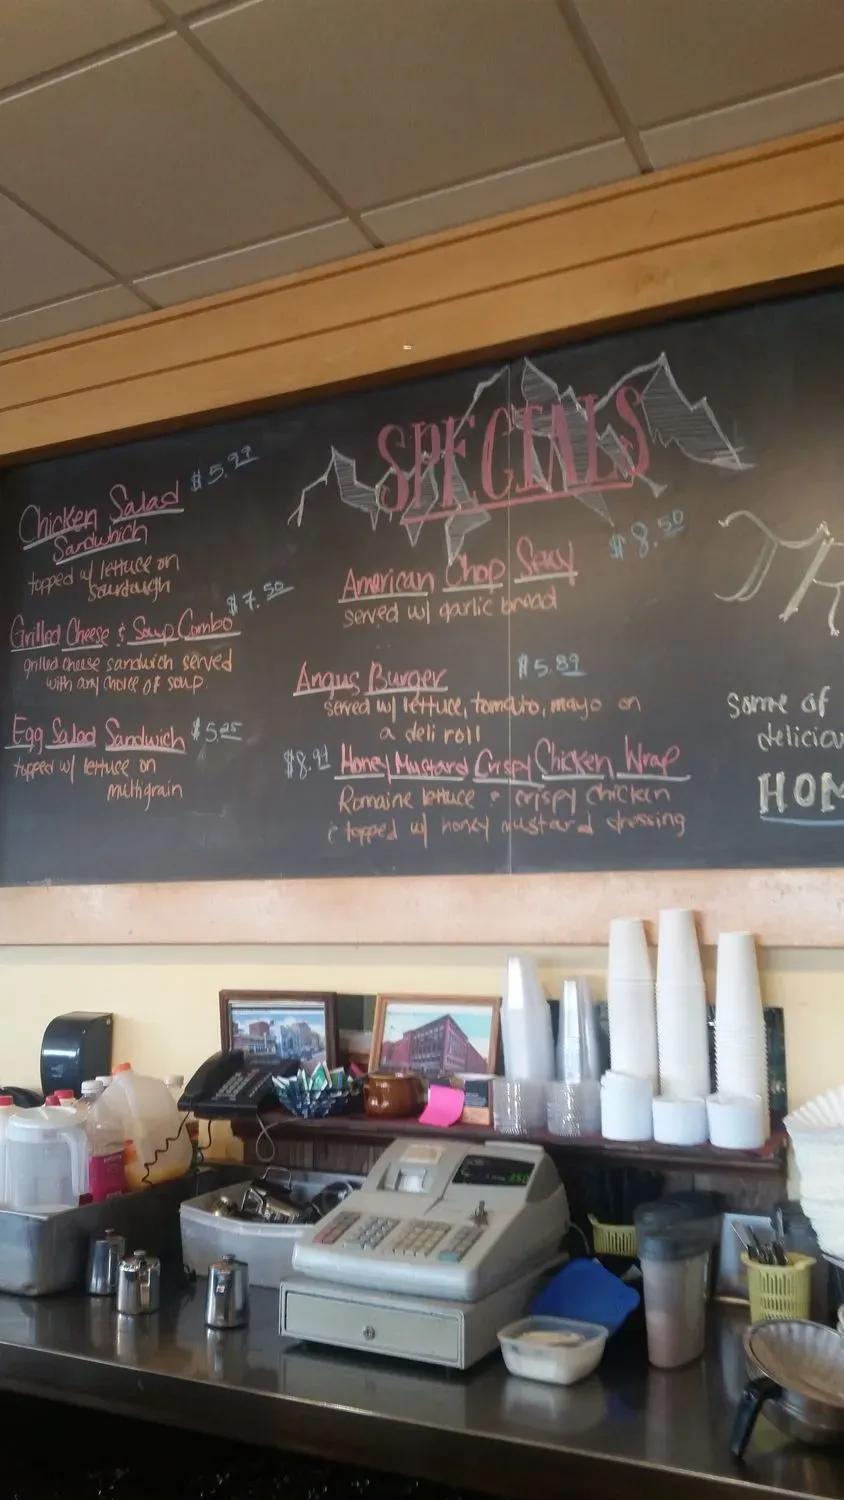 SPECIALS
Chicken Salad $5.99
Sandwhich
topped w/ lettuce on
sourdough
$7.50
Grilled Cheese & Soup Combo
grilled cheese sandwich served
with any choice of soup.
Egg Salad Sandwich $5.25
topped w/ lettuce on
multigrain
$8.50
American Chop Suey
served w/ garlic bread
Angus Burger $5.89
served w/ lettuce, tomato, mayo on
a deli roll
Honey Mustard Crispy Chicken Wrap
Romaine lettuce & crispy chicken
& topped w/ honey mustard dressing
Some of